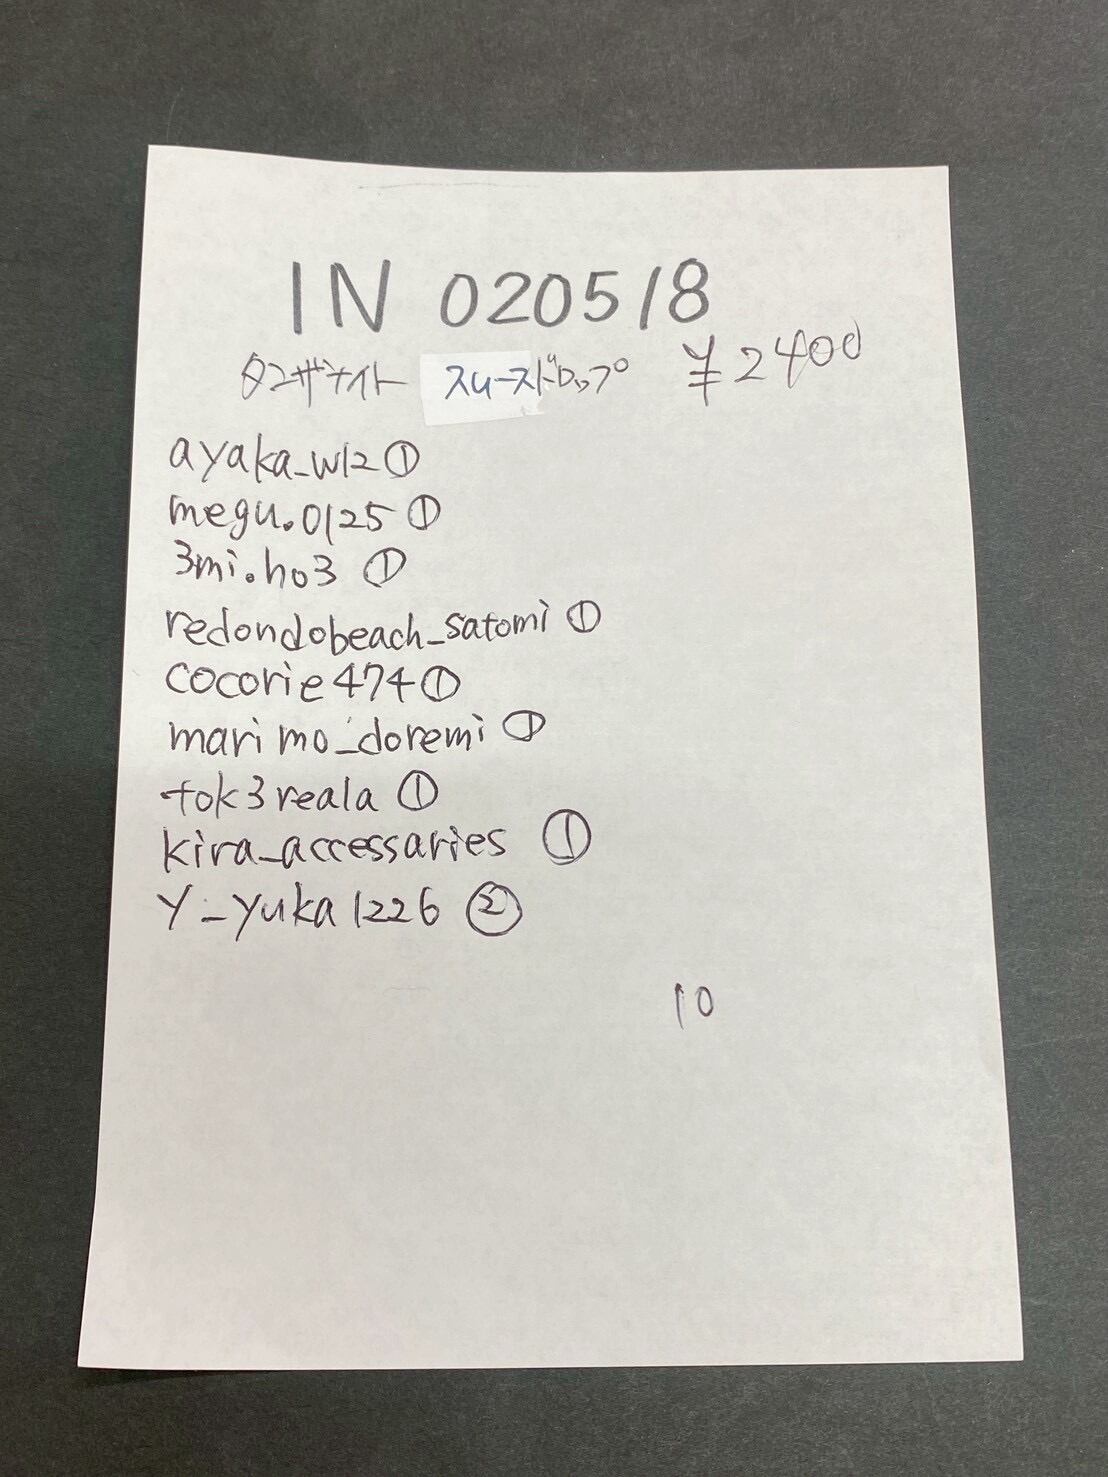 IN 020518
タンザナイト スムースドロップ ¥2400
ayaka_w12①
megu.0125①
3mi.ho3①
redondobeach_satomi①
cocorie474①
marimo_doremi①
tok3reala①
kira_accessaries①
y_yuka1226②
10